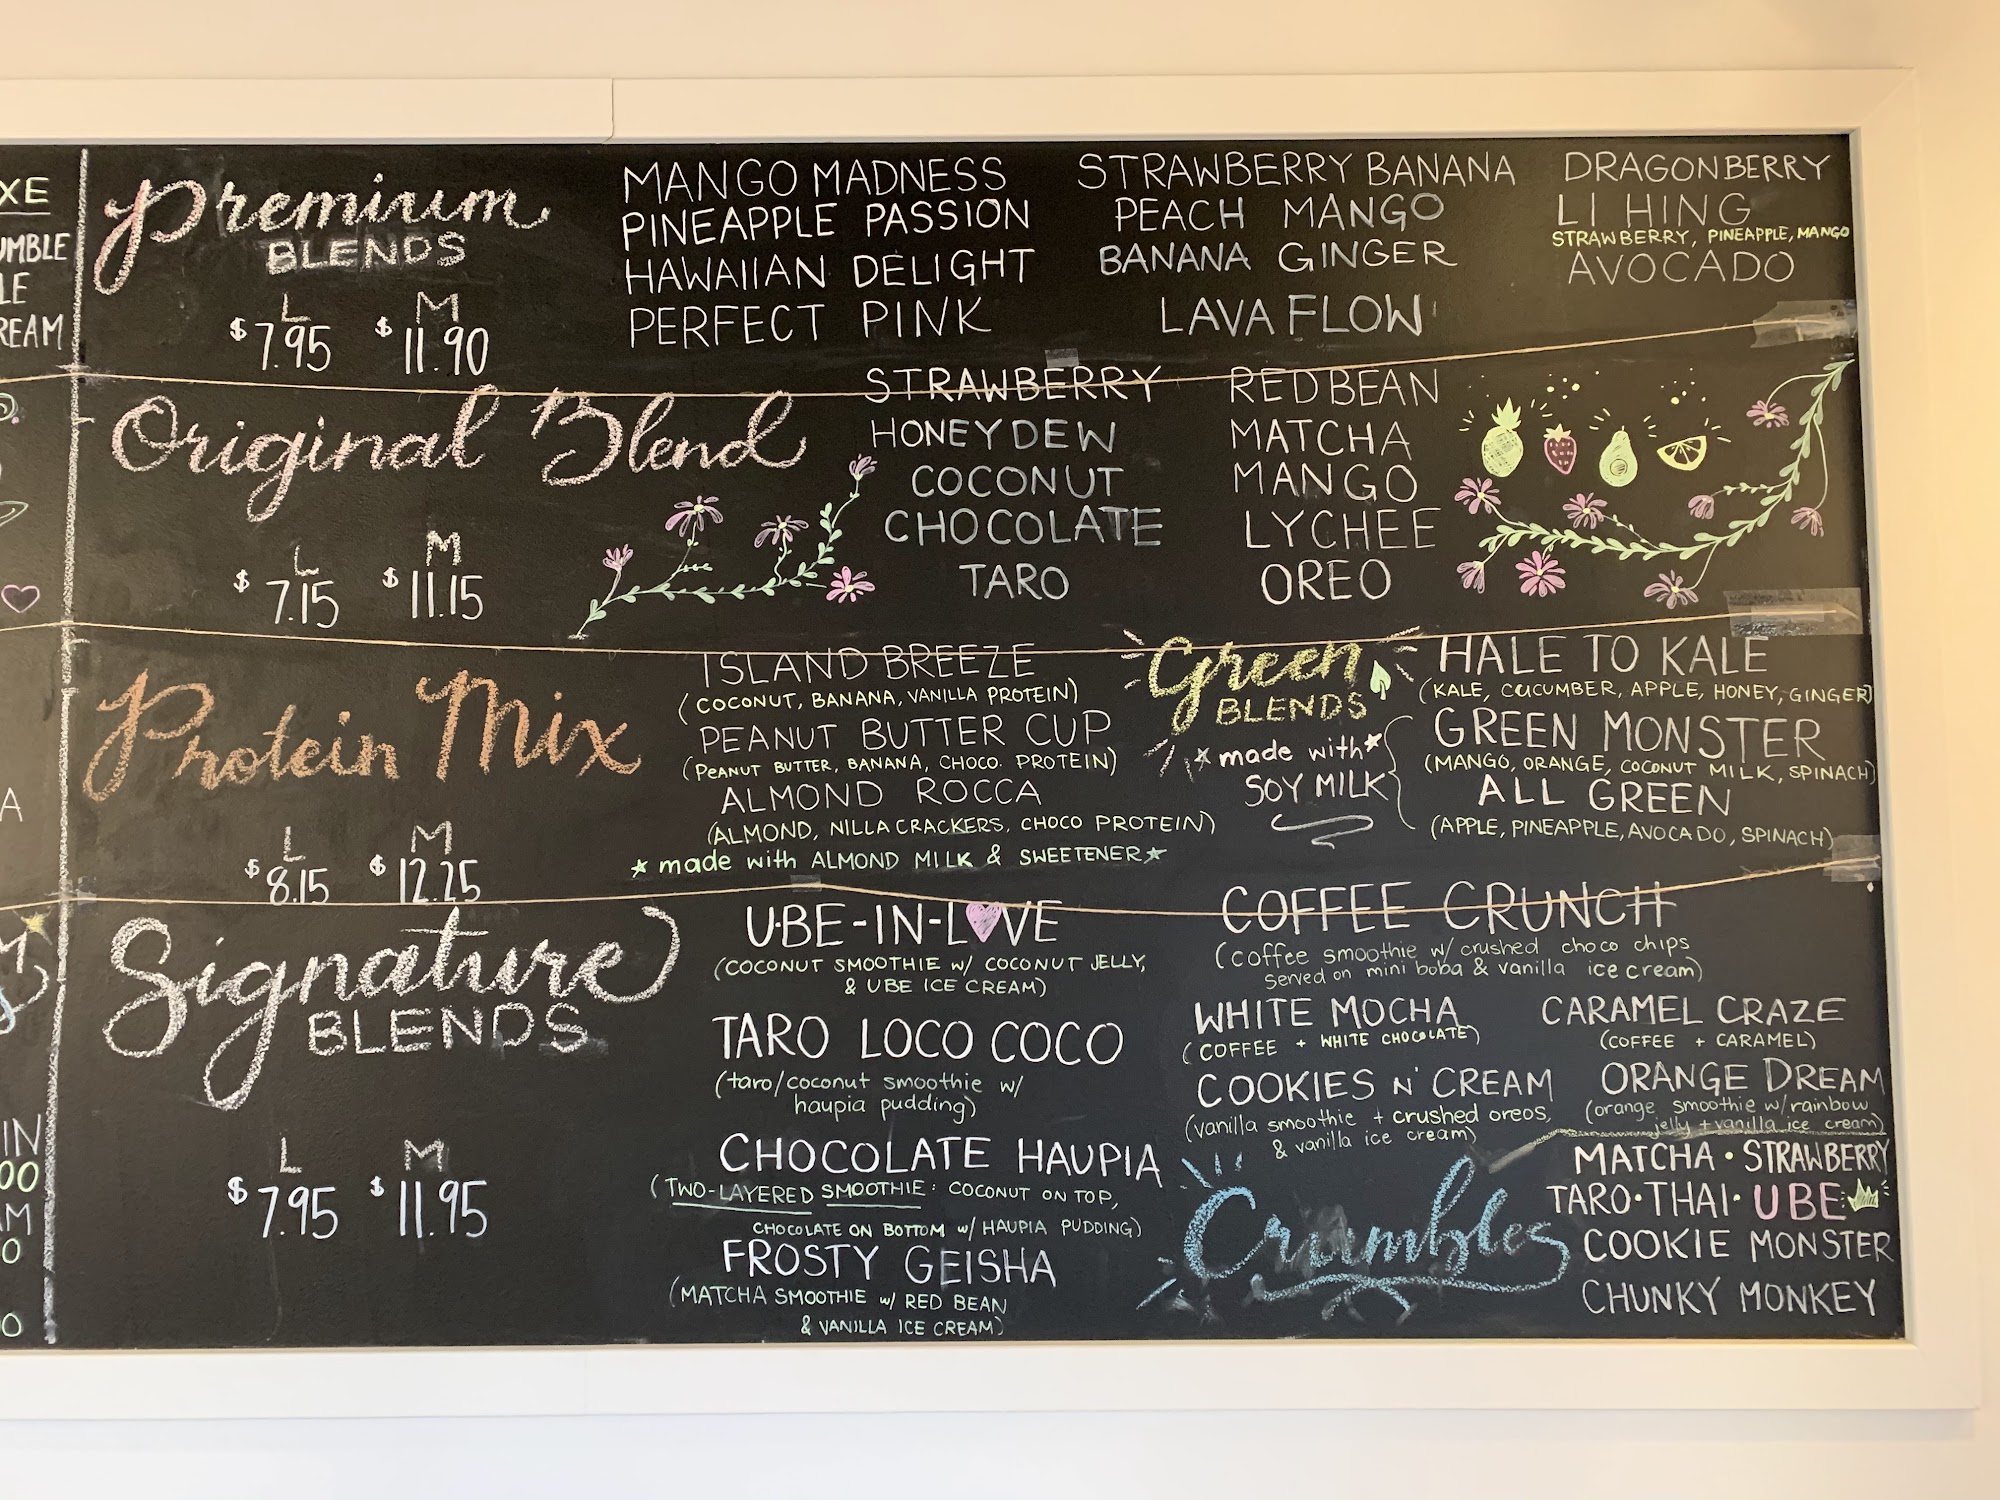 XE
UMBLE
LE
REAM
A
IN
00
AM
0
0
Premium
BLENDS
L M
$7.95 $11.90
MANGO MADNESS
PINEAPPLE PASSION
HAWAIIAN DELIGHT
PERFECT PINK
STRAWBERRY BANANA
PEACH MANGO
BANANA GINGER
LAVA FLOW
DRAGONBERRY
LI HING
STRAWBERRY, PINEAPPLE, MANGO
AVOCADO
Original Blend
L M
$7.15 $11.15
STRAWBERRY
HONEYDEW
COCONUT
CHOCOLATE
TARO
REDBEAN
MATCHA
MANGO
LYCHEE
OREO
Protein Mix
L M
$8.15 $12.25
ISLAND BREEZE
(COCONUT, BANANA, VANILLA PROTEIN)
PEANUT BUTTER CUP
(PEANUT BUTTER, BANANA, CHOCO. PROTEIN)
ALMOND ROCCA
(ALMOND, NILLA CRACKERS, CHOCO PROTEIN)
★ made with ALMOND MILK & SWEETENER★
Green
BLENDS
★ made with★
SOY MILK
HALE TO KALE
(KALE, CUCUMBER, APPLE, HONEY, GINGER)
GREEN MONSTER
(MANGO, ORANGE, COCONUT MILK, SPINACH)
ALL GREEN
(APPLE, PINEAPPLE, AVOCADO, SPINACH)
Signature
BLENDS
L M
$7.95 $11.95
U·BE-IN-L♥VE
(COCONUT SMOOTHIE w/ COCONUT JELLY,
& UBE ICE CREAM)
TARO LOCO COCO
(taro/coconut smoothie w/
haupia pudding)
CHOCOLATE HAUPIA
(TWO-LAYERED SMOOTHIE: COCONUT ON TOP,
CHOCOLATE ON BOTTOM w/ HAUPIA PUDDING)
FROSTY GEISHA
(MATCHA SMOOTHIE w/ RED BEAN
& VANILLA ICE CREAM)
COFFEE CRUNCH
(coffee smoothie w/ crushed choco chips
served on mini boba & vanilla ice cream)
WHITE MOCHA
(COFFEE + WHITE CHOCOLATE)
CARAMEL CRAZE
(COFFEE + CARAMEL)
COOKIES N' CREAM
(vanilla smoothie + crushed oreos,
& vanilla ice cream)
ORANGE DREAM
(orange smoothie w/rainbow
jelly + vanilla ice cream)
Crumbles
MATCHA • STRAWBERRY
TARO • THAI • UBE
COOKIE MONSTER
CHUNKY MONKEY